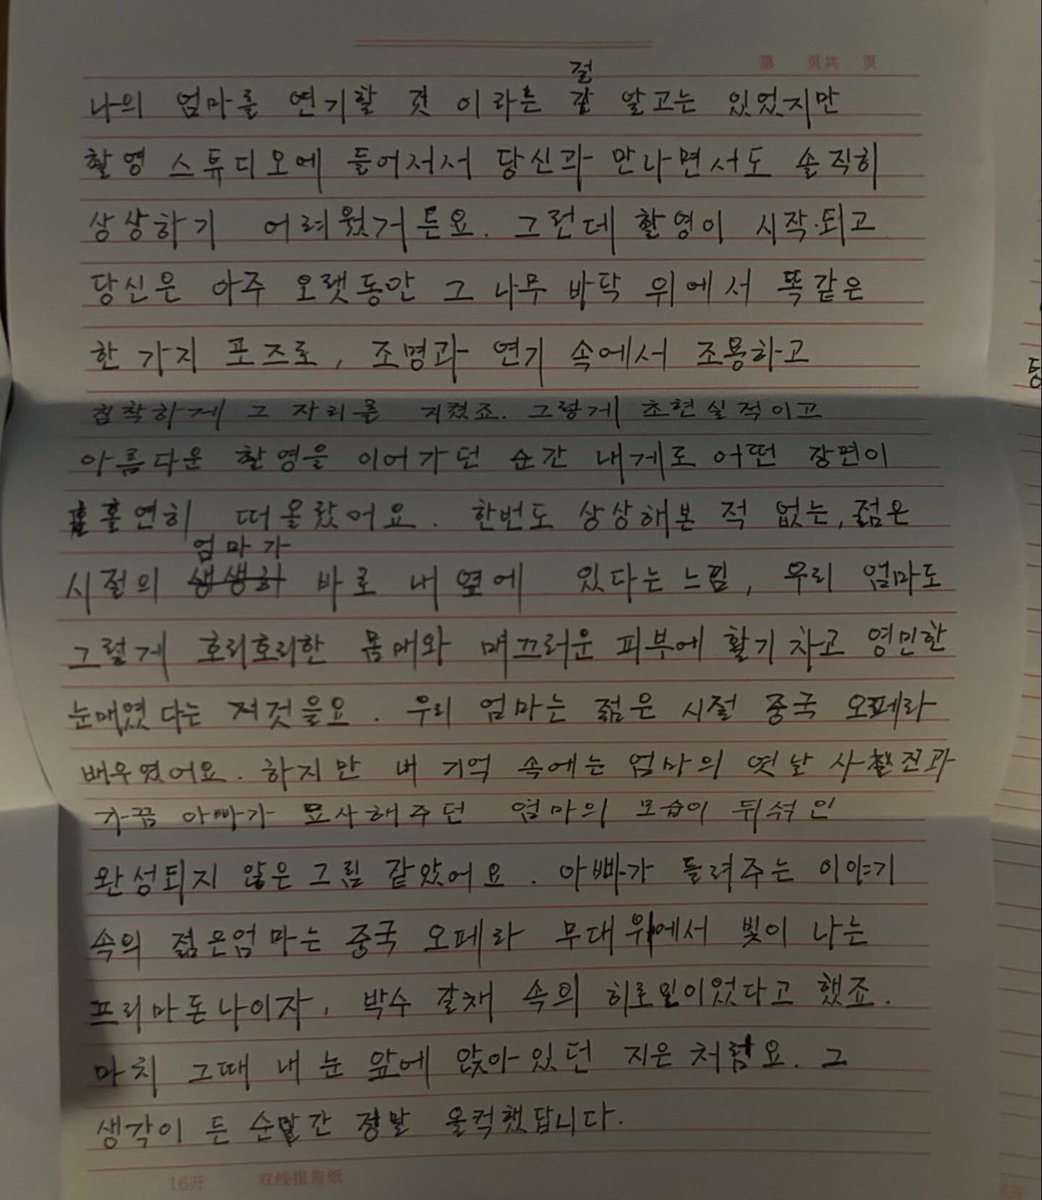 第 页共 页
절
나의 엄마를 연기할 것 이라는 잘 알고는 있었지만
촬영 스튜디오에 들어저서 당신과 만나면서도 솔직히
상상하기 어려웠거든요. 그런데 촬영이 시작되고
당신은 아주 오랫동안 그 나무 바닥 위에서 똑같은
한 가지 포즈로, 조명과 연기 속에서 조용하고
침착하게 그 자리를 지켰죠. 그렇게 초현실적이고
아름다운 촬영을 이어가던 순간 내게로 어떤 장면이
홀연히 떠올랐어요. 한번도 상상해본 적 없는, 젊은
엄마가
시절의 생생히 바로 내 옆에 있다는 느낌, 우리 엄마도
그렇게 호리호리한 몸매와 매끄러운 피부에 활기 차고 영민한
눈매였다는 것을요. 우리 엄마는 젊은 시절 중국 오페라
배우였어요. 하지만 내 기억 속에는 엄마의 옛날 사진과
가끔 아빠가 묘사해주던 엄마의 모습이 뒤섞인
완성되지 않은 그림 같았어요. 아빠가 들려주는 이야기
속의 젊은엄마는 중국 오페라 무대위에서 빛이 나는
프리마돈나이자, 박수 갈채 속의 히로인이었다고 했죠.
마치 그때 내 눈 앞에 앉아있던 지은처럼요. 그
생각이 든 순간 정말 울컥했답니다.
16开 双线报告纸